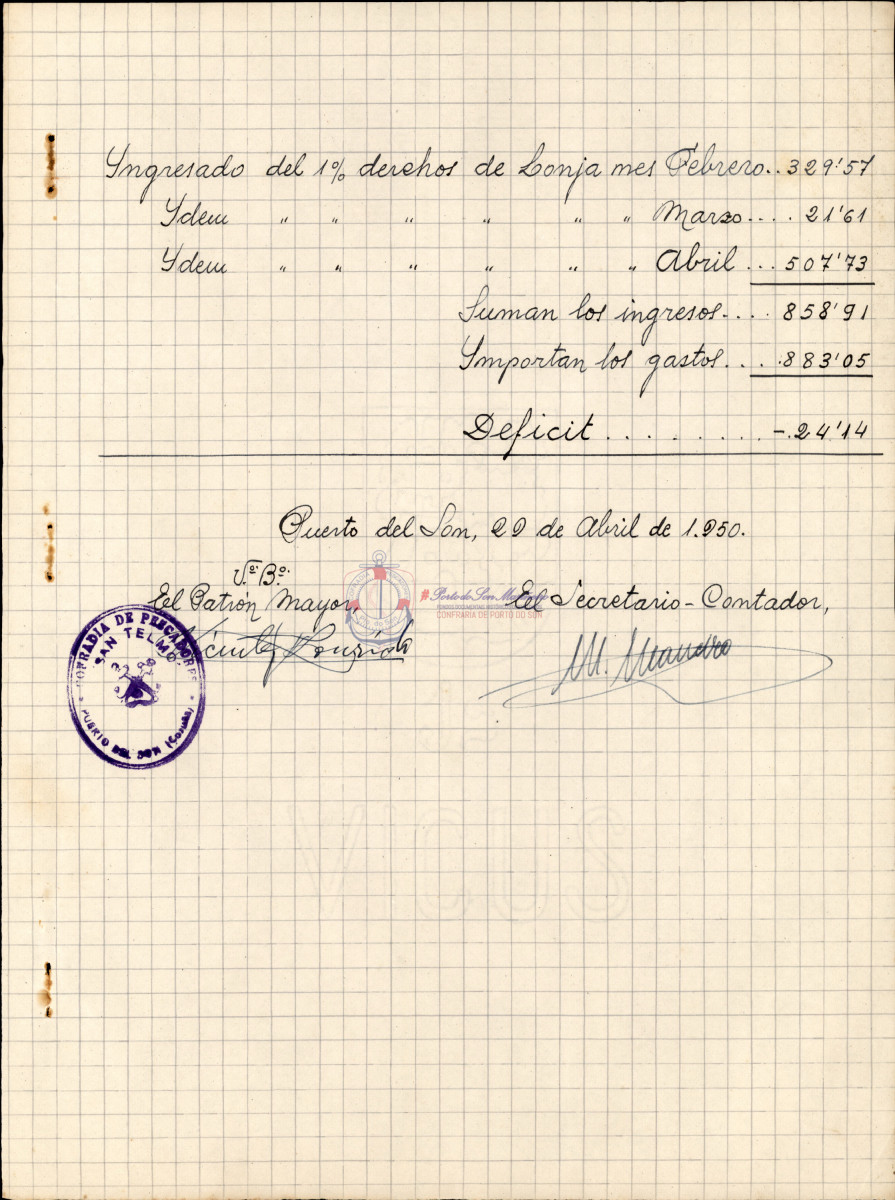 Yngresado del 1% derechos de Lonja mes Febrero.. 329'57
Ydem " " " " " " Marzo.... 21'61
Ydem " " " " " " Abril ... 507'73
Suman los ingresos.... 858'91
Ymportan los gastos.....883'05
Deficit......... -.24'14
Puerto del Son, 29 de Abril de 1.950.
V.º B.º
El Patrón Mayor,
El Secretario-Contador,
COFRADIA DE PESCADORES
SAN TELMO
PUERTO DEL SON (Coruña)
#Porto do Son
CONFRARIA DE PORTO DO SON
VICUS